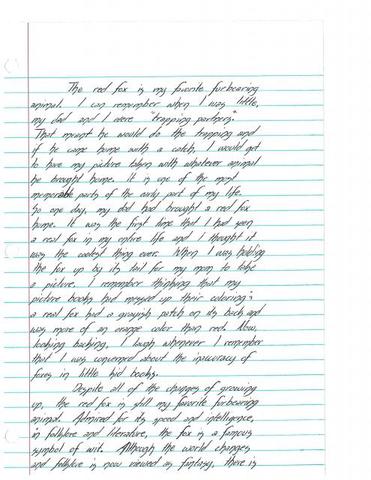 The red fox is my favorite furbearing
animal. I can remember when I was little,
my dad and I were "trapping partners."
That meant he would do the trapping and
if he came home with a catch, I would get
to have my picture taken with whatever animal
he brought home. It is one of the most
memorable parts of the early part of my life.
So one day, my dad had brought a red fox
home. It was the first time that I had seen
a real fox in my entire life and I thought it
was the coolest thing ever. When I was holding
the fox up by its tail for my mom to take
a picture, I remember thinking that my
picture books had messed up their coloring;
a real fox had a grayish patch on its back and
was more of an orange color than red. Now,
looking backing, I laugh whenever I remember
that I was concerned about the inaccuracy of
foxes in little kid books.
Despite all of the changes of growing
up, the red fox is still my favorite furbearing
animal. Admired for its speed and intelligence,
in folklore and literature, the fox is a famous
symbol of wit. Although the world changes
and folklore is now viewed as fantasy, there is